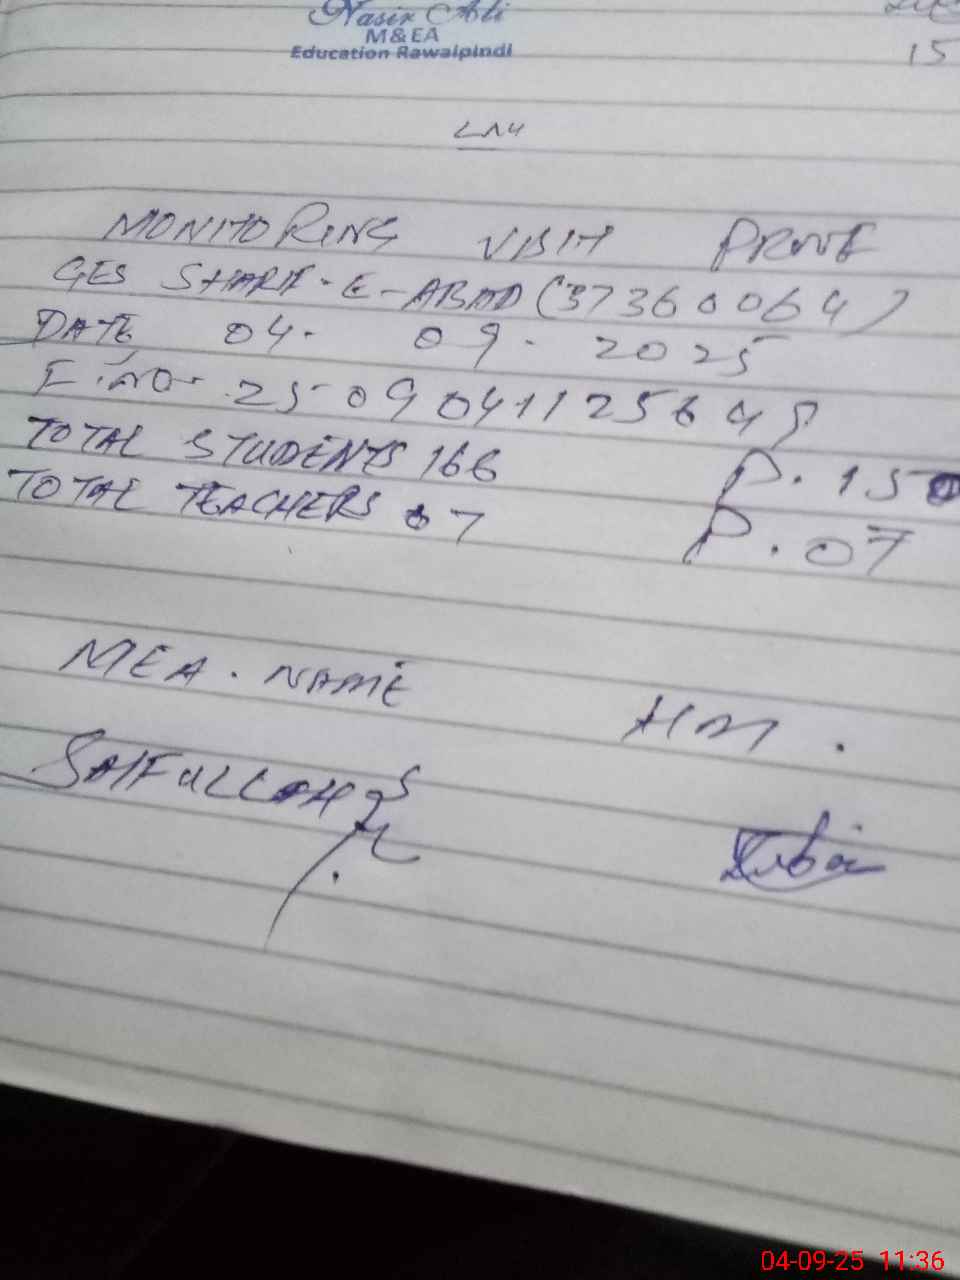 Nasir Ali
M&EA
Education Rawalpindi
15
MONITORING VISIT PROVE
GES SHARK-E-ABAD (37360064)
DATE 04. 09. 2025
E.NO. 25090411256
TOTAL STUDENTS 166 P. 150
TOTAL TEACHERS 07 P. 07
MEA. NAME HM.
SAIFULLAH
04-09-25 11:36